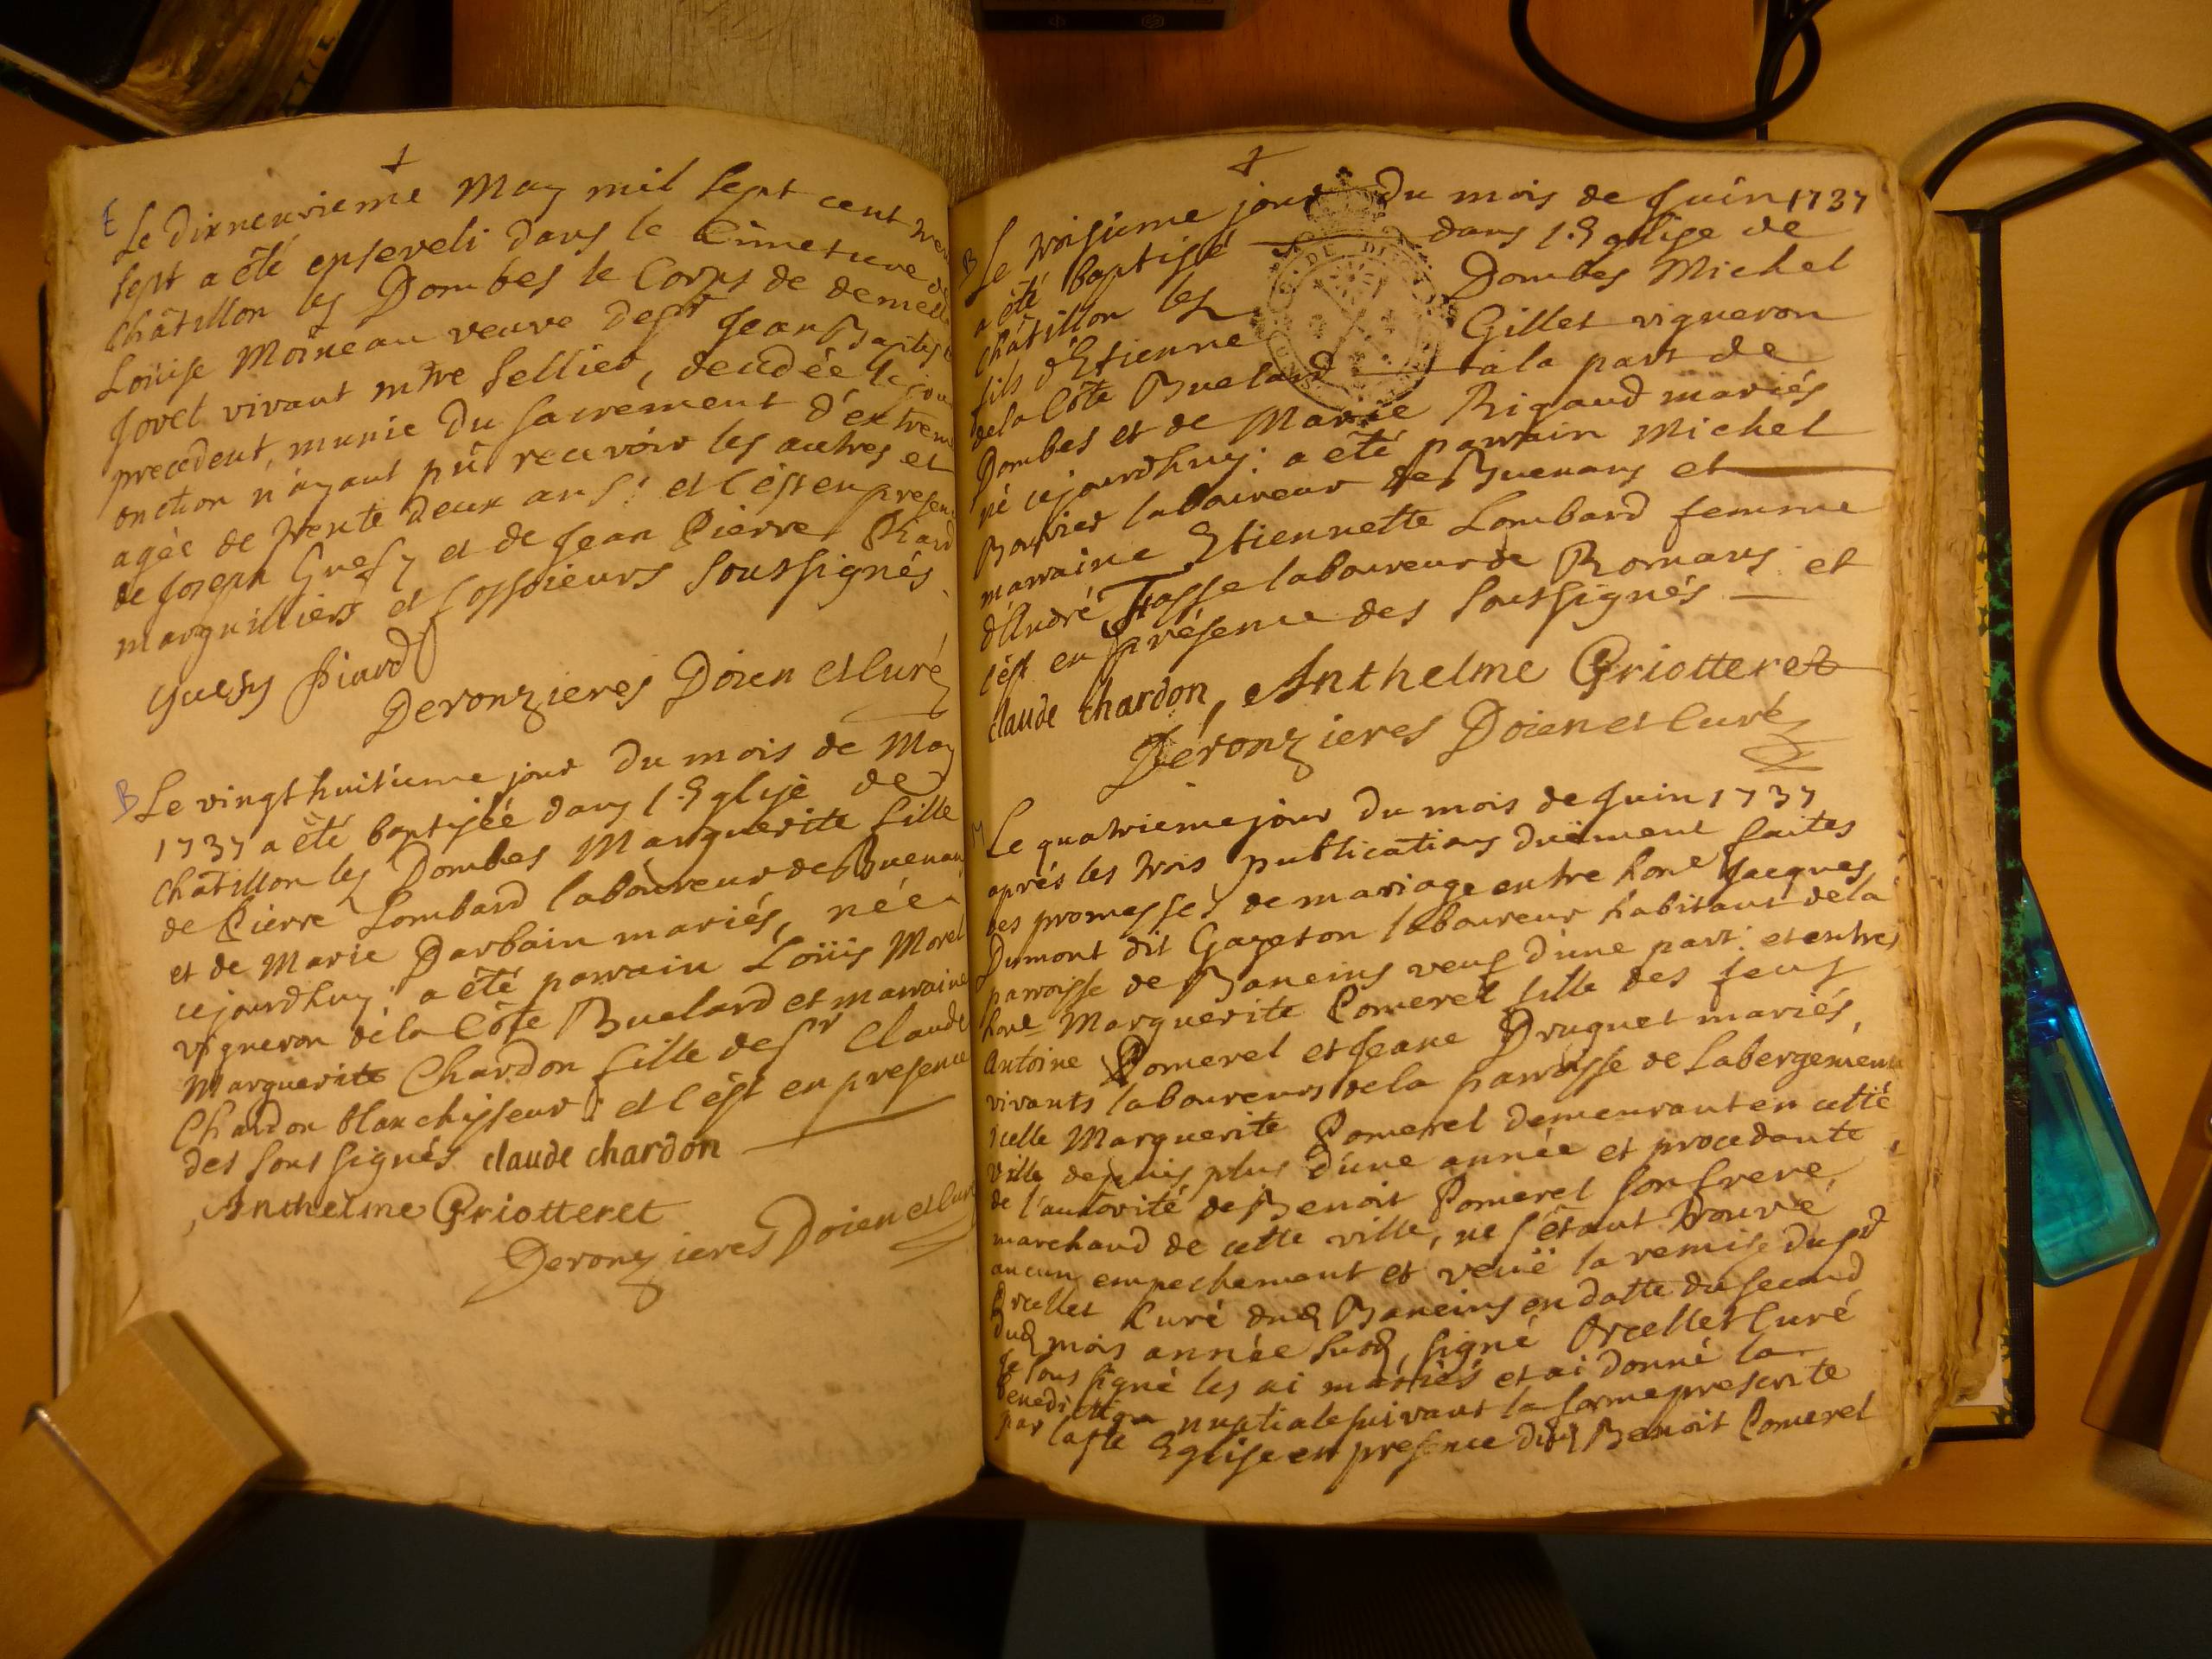 E
Le dixneuvieme May mil sept cent tren
sept a été enseveli dans le Cimetiere de
Châtillon les Dombes le Corps de demelle
Loüise Moineau veuve de sr Jean Baptiste
Jovet vivant mtre sellier, decedée le jour
precedent, munie du sacrement d'extreme
onction n'ayant pû recevoir les autres et
agée de trente deux ans: et c'est en presen
de Joseph Guesy et de Jean Pierre Piard
marguilliers et fossoieurs soussignés
Guesy Piard
Deronzieres Doien et Curé
B
Le vingt huitieme jour du mois de May
1737 a été baptisée dans l'Eglise de
Châtillon les Dombes Marguerite fille
de Pierre Lombard laboureur de Buenan
et de Marie Darbain mariés, née
cejourdhuy: a été parrain Loüis Morel
vigneron de la Côte Buelard et marraine
Marguerite Chardon fille de sr Claude
Chardon blanchisseur: et c'est en presence
des soussignés claude chardon
Anthelme Griotteret
Deronzieres Doien et Curé
B
Le troisieme jour du mois de Juin 1737
a été baptisé dans l'Eglise de
Châtillon les Dombes Michel
fils d'Etienne Gillet vigneron
de la Côte Buelard à la part de
Dombes et de Marie Rigaud mariés
né cejourdhuy: a été parrain Michel
Bouvier laboureur de Buenans et
marraine Etiennette Lombard femme
d'André Fasse laboureur de Romans: et
c'est en présence des soussignés
claude chardon, Anthelme Griotteret
Deronzieres Doien et Curé
M
Le quatrieme jour du mois de Juin 1737
aprés les trois publications duëment faites
des promesses de mariage entre hone Jacques
Dumont dit Gageton laboureur habitant de la
parroisse de Baneins veuf d'une part: et entre
hone Marguerite Pomerel fille des feus
Antoine Pomerel et Jeane Druguet mariés,
vivants laboureurs de la parroisse de Labergement
icelle Marguerite Pomerel demeurant en cette
ville depuis plus d'une année et procedante
de l'autorité de Benoit Pomerel son frere,
marchand de cette ville, ne s'étant trouvé
aucun empechement et veüe la remise du sr
Orcellet Curé dud Baneins en datte du second
dud mois année susd, signé Orcellet Curé
Je soussigné les ai mariés et ai donné la
benediction nuptiale suivant la forme prescrite
par laste Eglise en presence dud Benoit Pomerel